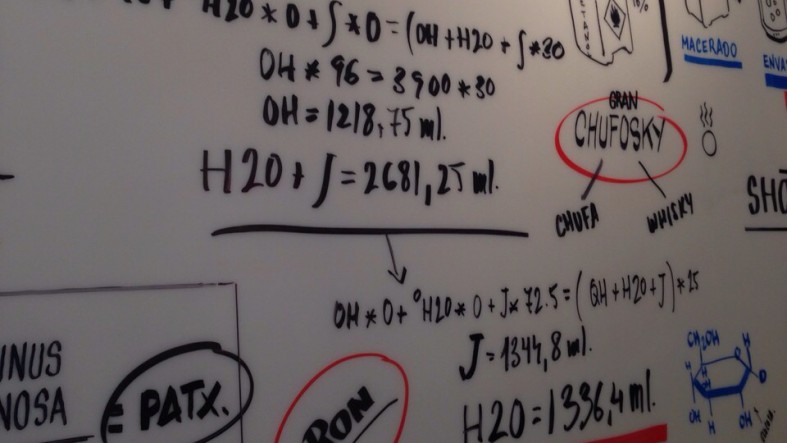 H2O*0+∫*0=(OH+H2O+∫*30
OH*96=3900*30
OH=1218,75 ml.
H2O+J=2681,25 ml.
OH*0+°H2O*0+J*72.5=(OH+H2O+J)*25
J=1344,8 ml.
H2O=1336,4 ml.
MACERADO
ENVAS
GRAN
CHUFOSKY
CHUFA
WHISKY
SHO
INUS
NOSA
= PATX.
RON
CH2OH
H
H
O
H
OH
H
OH